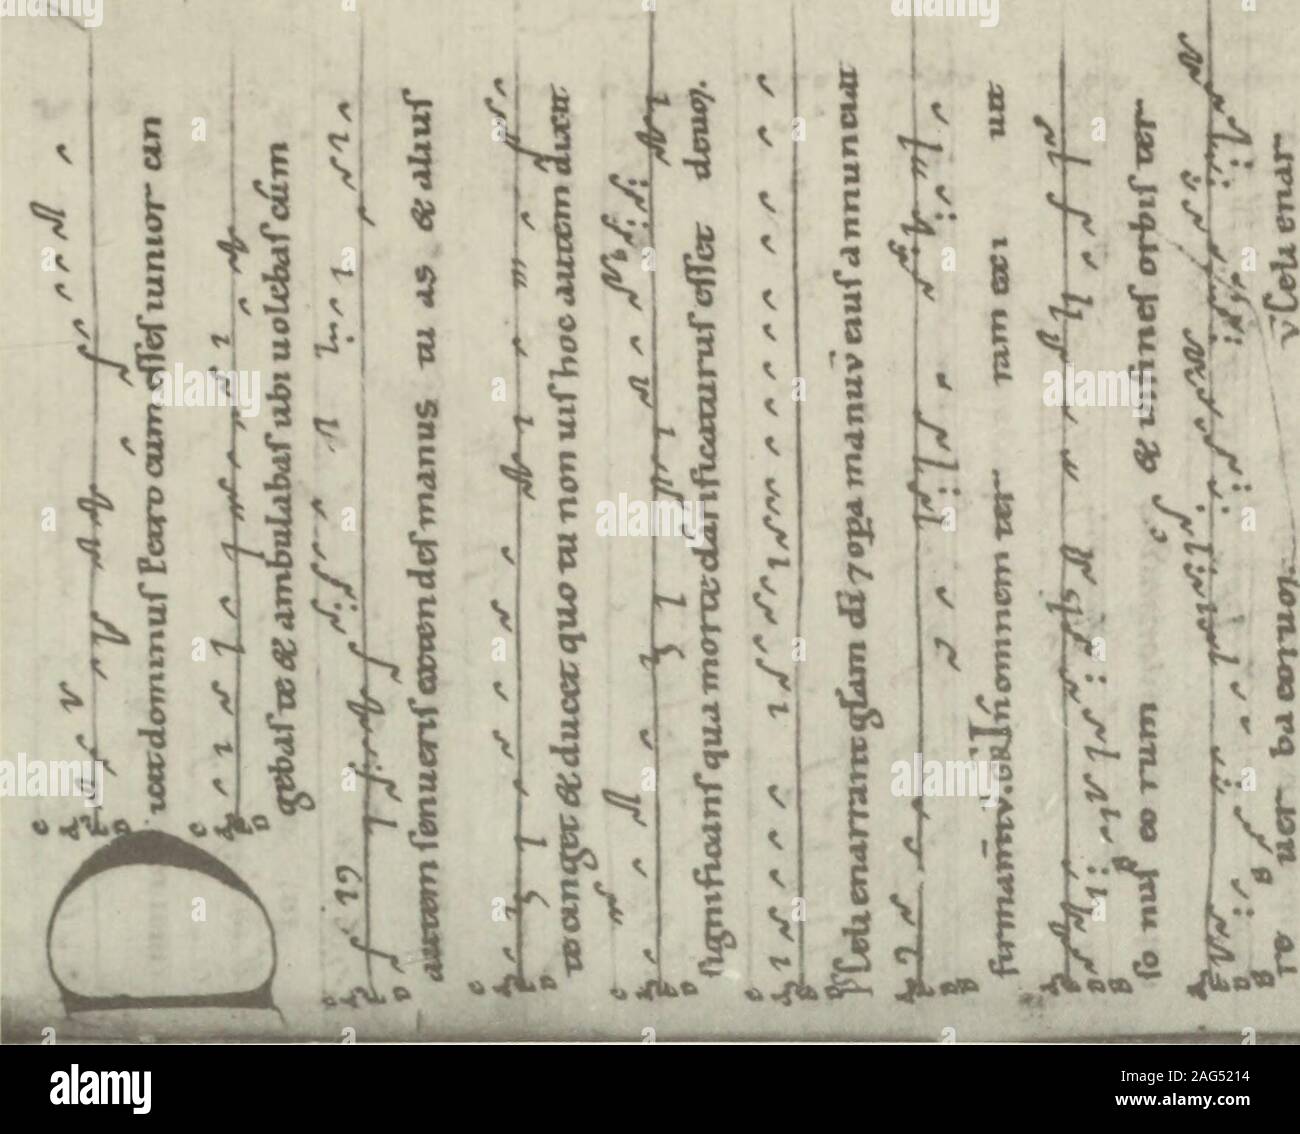 D icit dominus petro cum esses iunior cin
gebas te & ambulabas ubi uolebas cum
autem senueris extendes manus tu as & alius
te cinget & ducet quo tu non uis hoc autem dixit
significans qua morte clarificaturus esset deum.
Celi enarrant glam di 7 opa manuū eius annunciat
firmamtū. GR In omnem ter ram exi uit
so nus eo rum & in fines orbis ter
re uer ba eorum. v Celi enar
a alamy
Image ID: 2AG5214
www.alamy.com